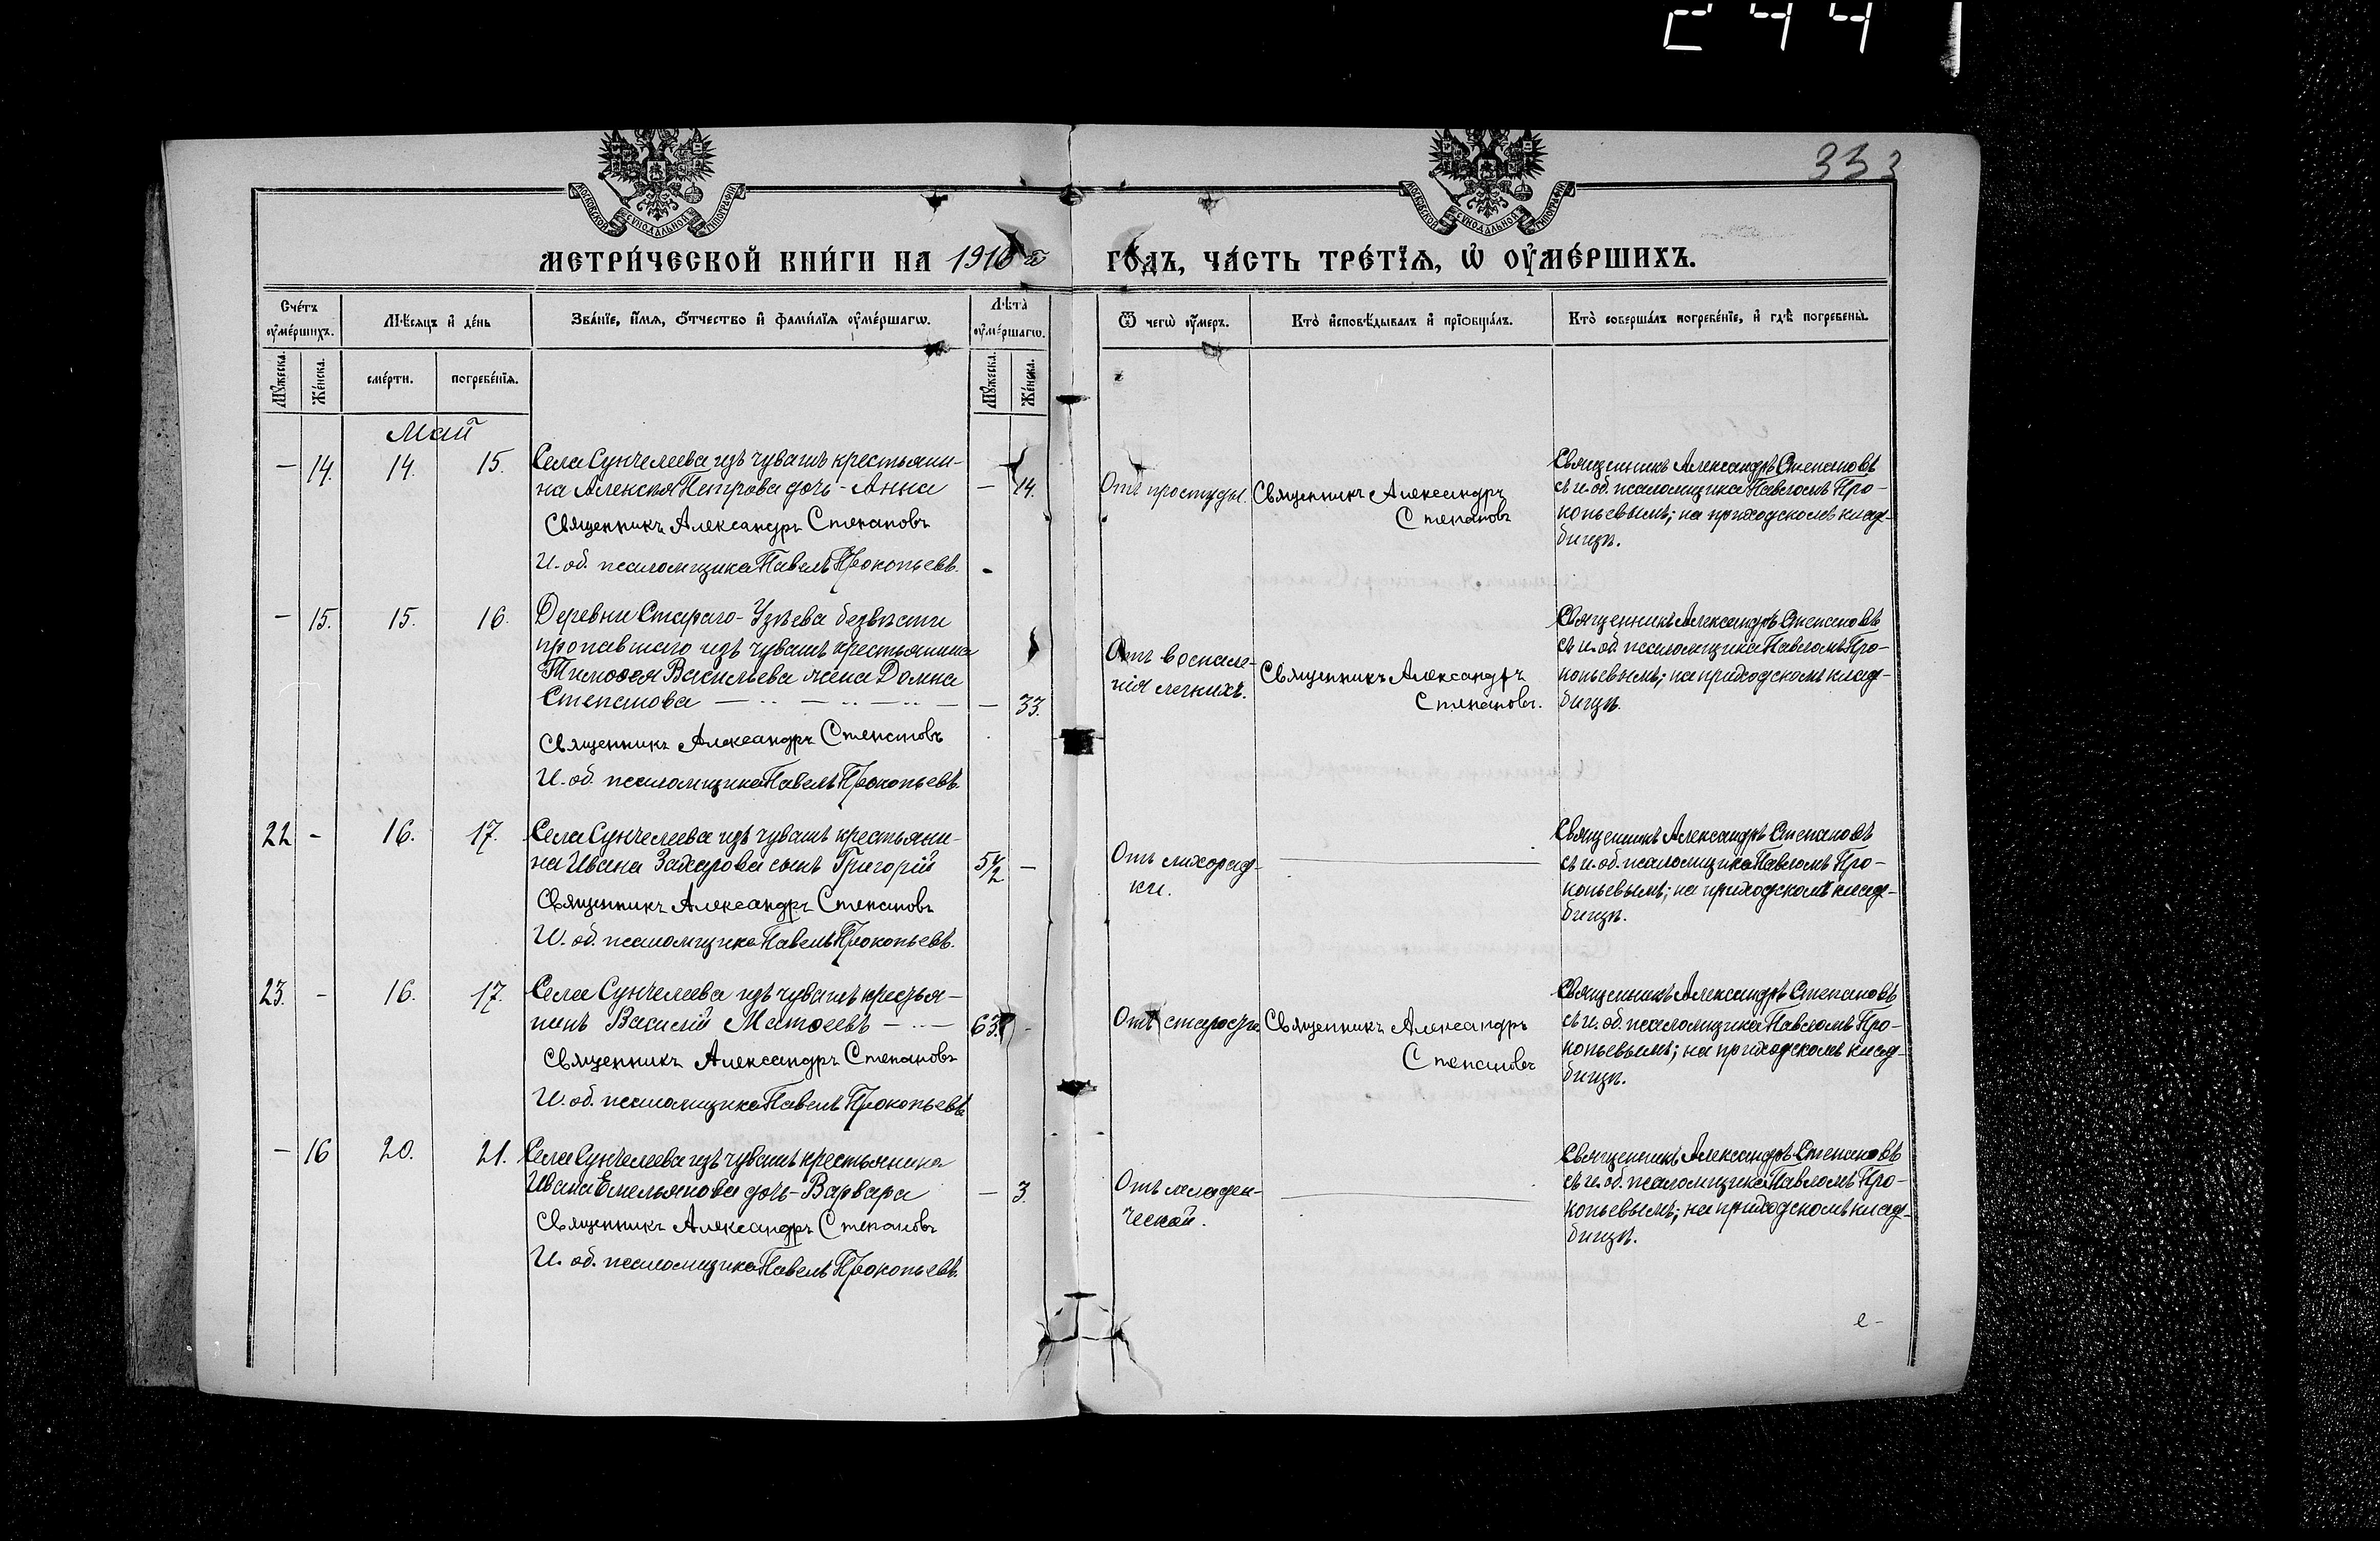 244
333
МОСКОВСКОЙ СѴНОДАЛЬНОЙ ТИПОГРАФІИ
МОСКОВСКОЙ СѴНОДАЛЬНОЙ ТИПОГРАФІИ
МЕТРИ́ЧЕСКОЙ КНИ́ГИ НА 1910 й ГО́ДЪ, ЧА́СТЬ ТРЕ́ТЇѦ, Ѡ҆ ОУ҆МЕ́РШИХЪ.
Сче́тъ оу҆ме́ршихъ.
Мѣ́сяцъ и҆ де́нь
Зва́нїе, и҆́мѧ, ѻ҆́тчество и҆ фами́лїѧ оу҆ме́ршагѡ.
Лѣ́та оу҆ме́ршагѡ.
Ѿ чегѡ̀ оу҆́меръ.
Кто̀ и҆сповѣ́дывалъ и҆ прїѡбща́лъ.
Кто̀ соверша́лъ погребе́нїе, и҆ гдѣ̀ погребены̀.
Мꙋ́жеска.
Же́нска.
сме́рти.
погребе́нїѧ.
Мꙋ́жеска.
Же́нска.
Май
— 14. 14. 15. Села Сунчелеева изъ чувашъ крестьяни-
на Алексѣя Петрова дочь - Анна — 14.
Священникъ Александръ Степановъ
И. об. псаломщика Павелъ Прокопьевъ.
Отъ простуды.
Священникъ Александръ
Степановъ
Священникъ Александръ Степановъ
съ и. об. псаломщика Павломъ Про-
копьевымъ; на приходскомъ клад-
бищѣ.
— 15. 15. 16. Деревни Стараго-Узѣева безвѣсти
пропавшаго изъ чувашъ крестьянина
Тимоѳея Васильева жена Домна
Степанова — — 33.
Священникъ Александръ Степановъ
И. об. псаломщика Павелъ Прокопьевъ.
Отъ воспале-
нія легкихъ.
Священникъ Александръ
Степановъ.
Священникъ Александръ Степановъ
съ и. об. псаломщика Павломъ Про-
копьевымъ; на приходскомъ клад-
бищѣ.
22 - 16. 17. Села Сунчелеева изъ чувашъ крестьяни-
на Ивана Захарова сынъ Григорій —
Священникъ Александръ Степановъ
И. об. псаломщика Павелъ Прокопьевъ.
Отъ лихорад-
ки.
Священникъ Александръ Степановъ
съ и. об. псаломщика Павломъ Про-
копьевымъ; на приходскомъ клад-
бищѣ.
23. - 16. 17. Села Сунчелеева изъ чувашъ крестья-
нинъ Василій Матѳеевъ — 63. -
Священникъ Александръ Степановъ
И. об. псаломщика Павелъ Прокопьевъ
Отъ старости
Священникъ Александръ
Степановъ
Священникъ Александръ Степановъ
съ и. об. псаломщика Павломъ Про-
копьевымъ; на приходскомъ клад-
бищѣ.
— 16 20. 21. Села Сунчелеева изъ чувашъ крестьянина
Ивана Емельянова дочь - Варвара — 3.
Священникъ Александръ Степановъ
И. об. псаломщика Павелъ Прокопьевъ.
Отъ младен-
ческой.
Священникъ Александръ Степановъ
съ и. об. псаломщика Павломъ Про-
копьевымъ; на приходскомъ клад-
бищѣ.